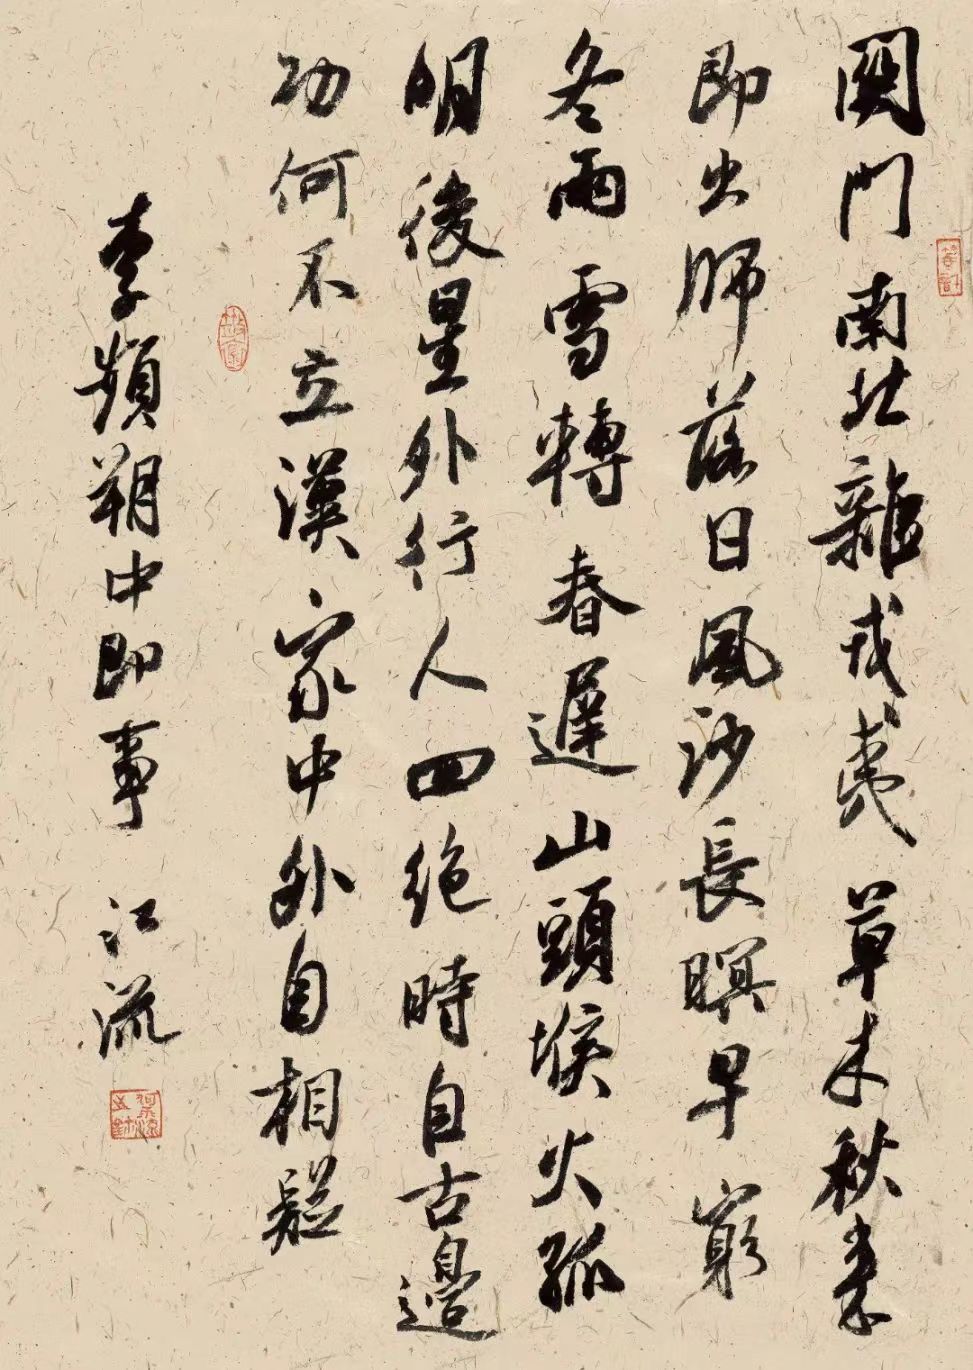 關門南北雜戎夷草木秋來
即出師落日風沙長暝早窮
冬雨雪轉春遲山頭堠火孤
明後星外行人四絶時自古邊
功何不立漢家中外自相疑
李頻朔中即事 江流